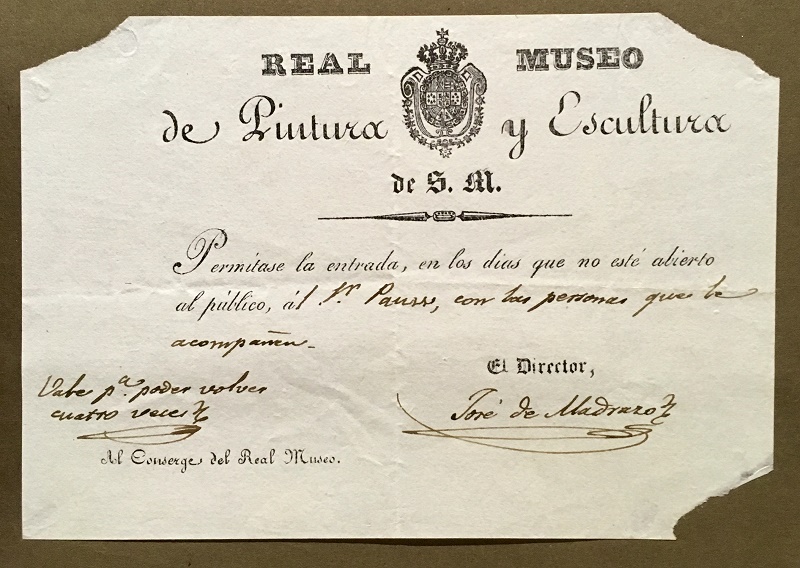 REAL MUSEO
de Pintura y Escultura
de S. M.
Permítase la entrada, en los dias que no esté abierto
al público, ál S.r, con las personas que le
acompañen
El Director,
Vale p.a poder volver
cuatro veces
José de Madrazo
Al Conserge del Real Museo.